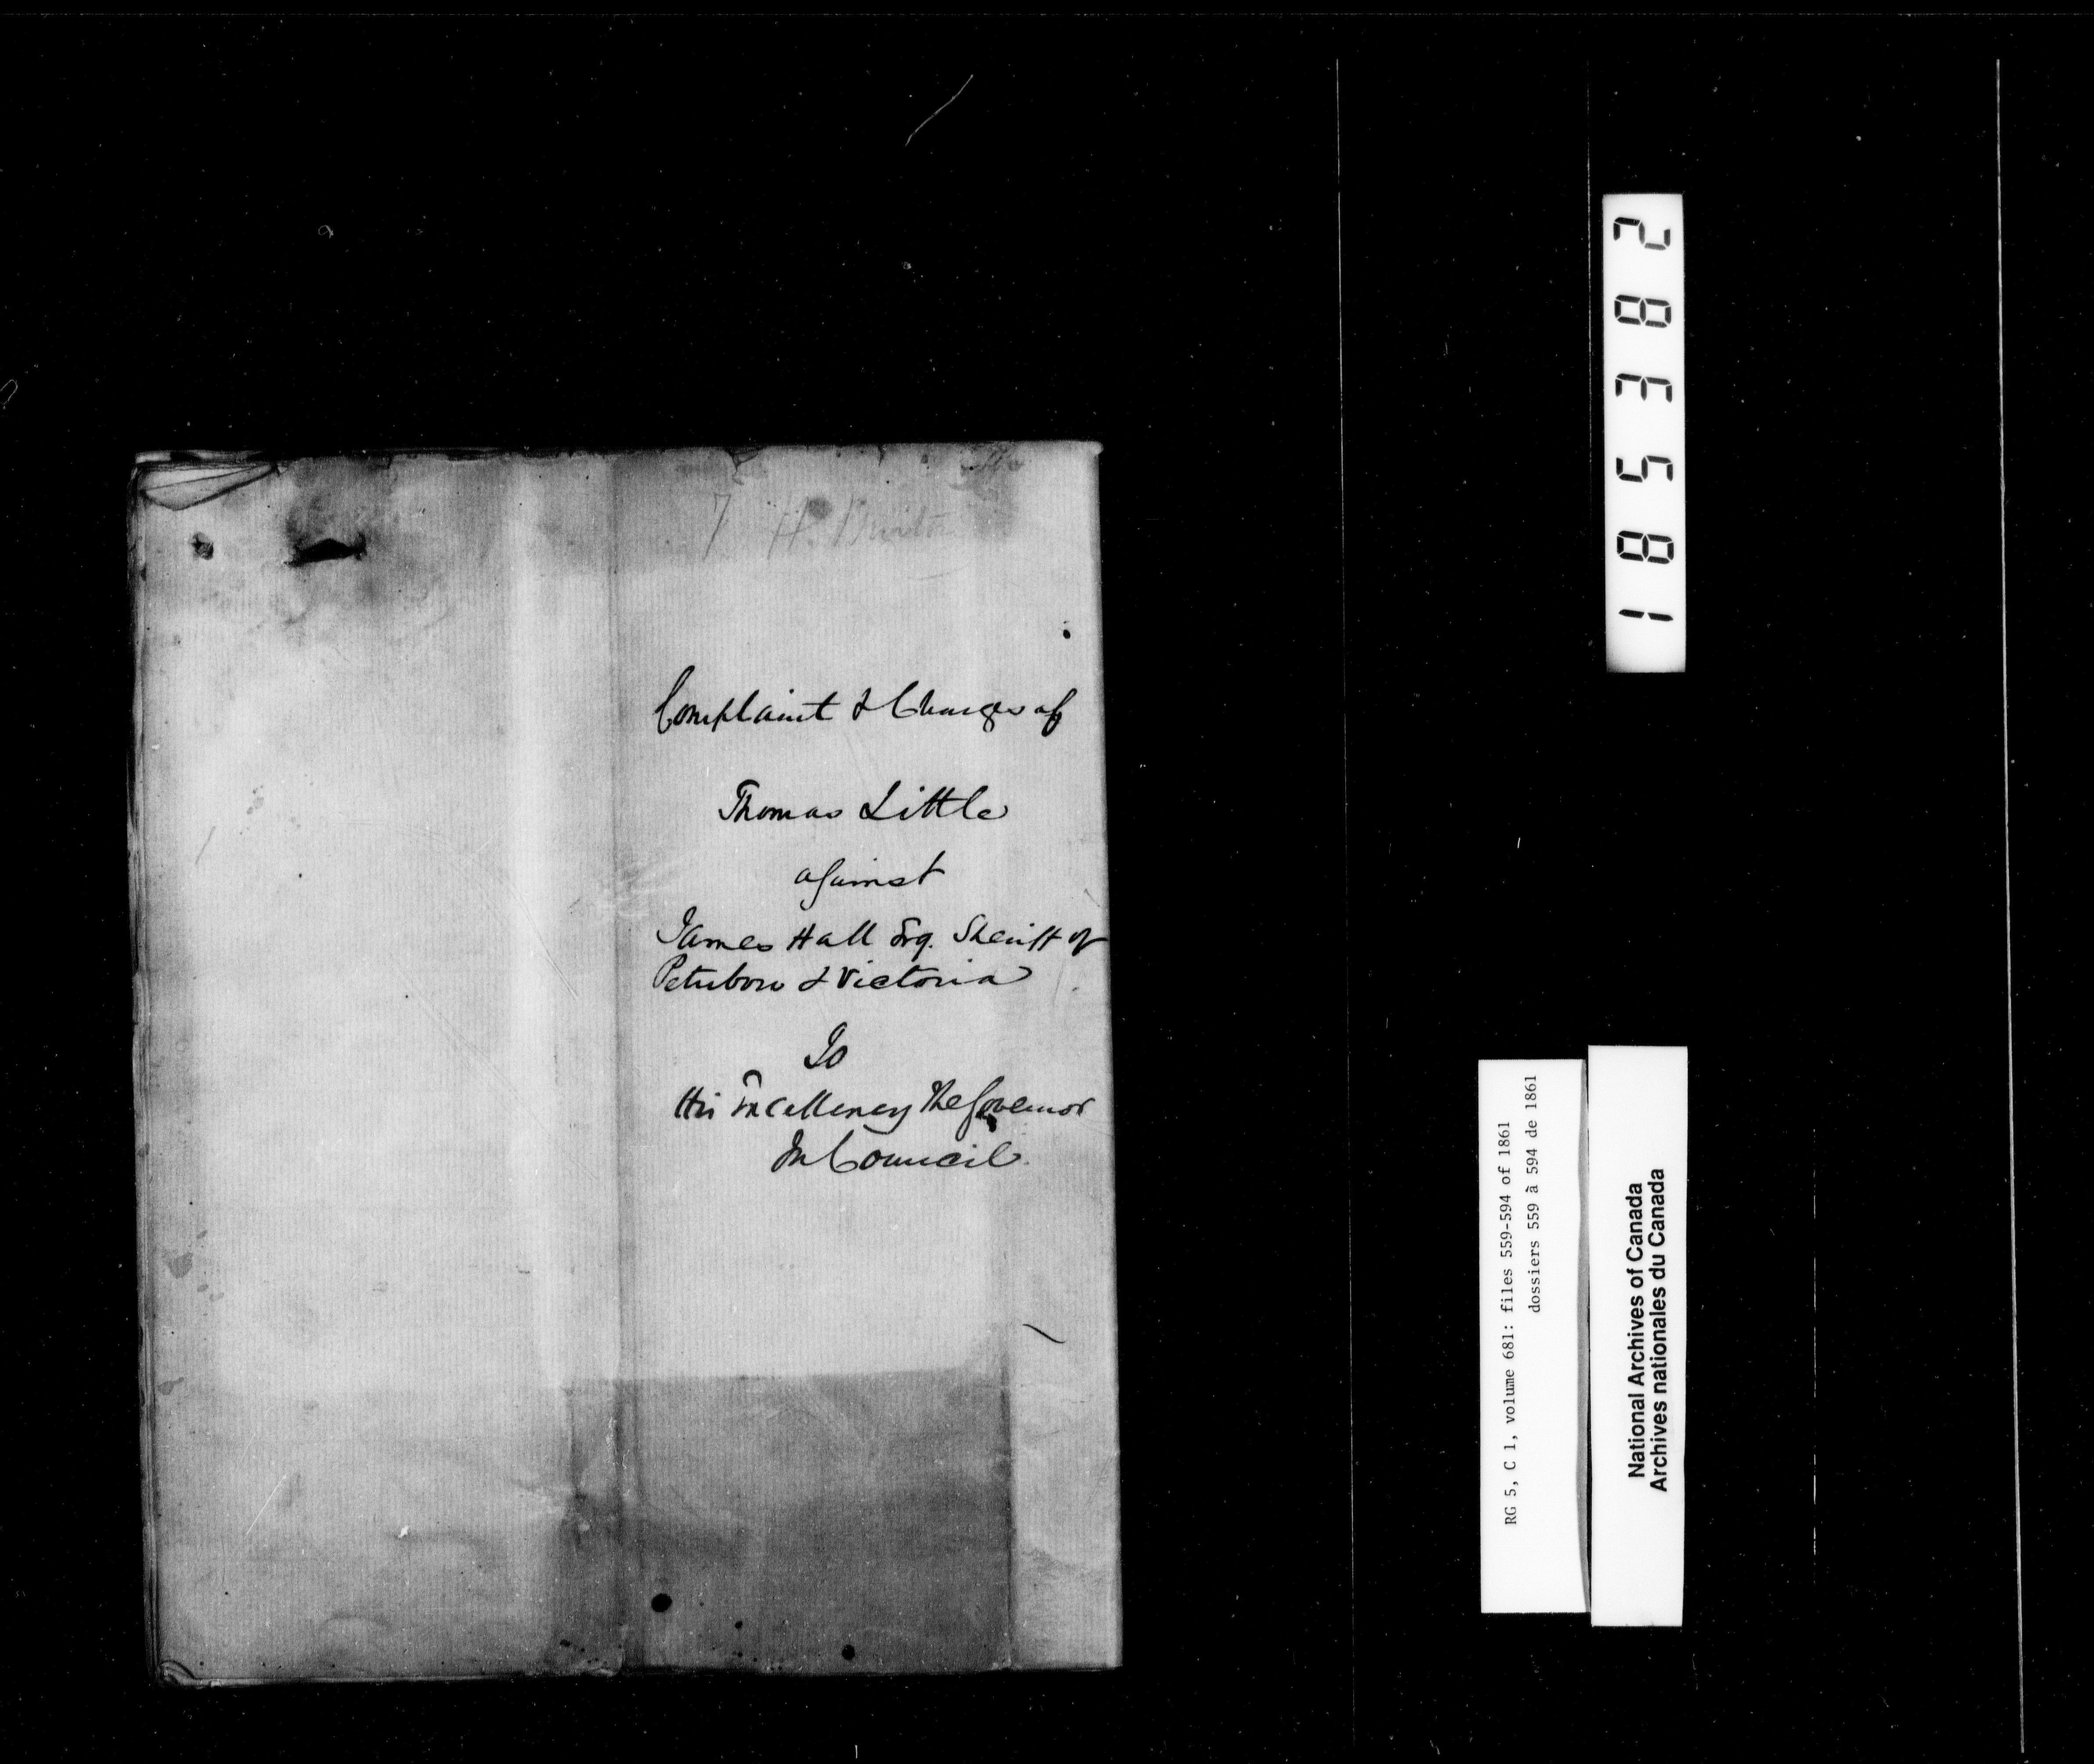 7 H.
Complaint & Charges of
Thomas Little
against
James Hall Esq. Sheriff of
Peterboro & Victoria
To
His Excellency The Governor
In Council.
185382
RG 5, C 1, volume 681: files 559-594 of 1861
dossiers 559 à 594 de 1861
National Archives of Canada
Archives nationales du Canada